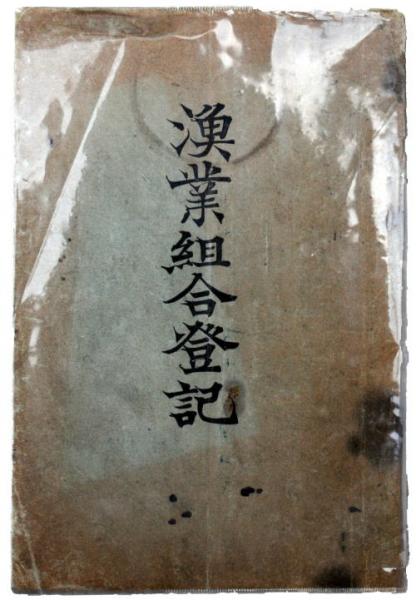 漁業組合登記